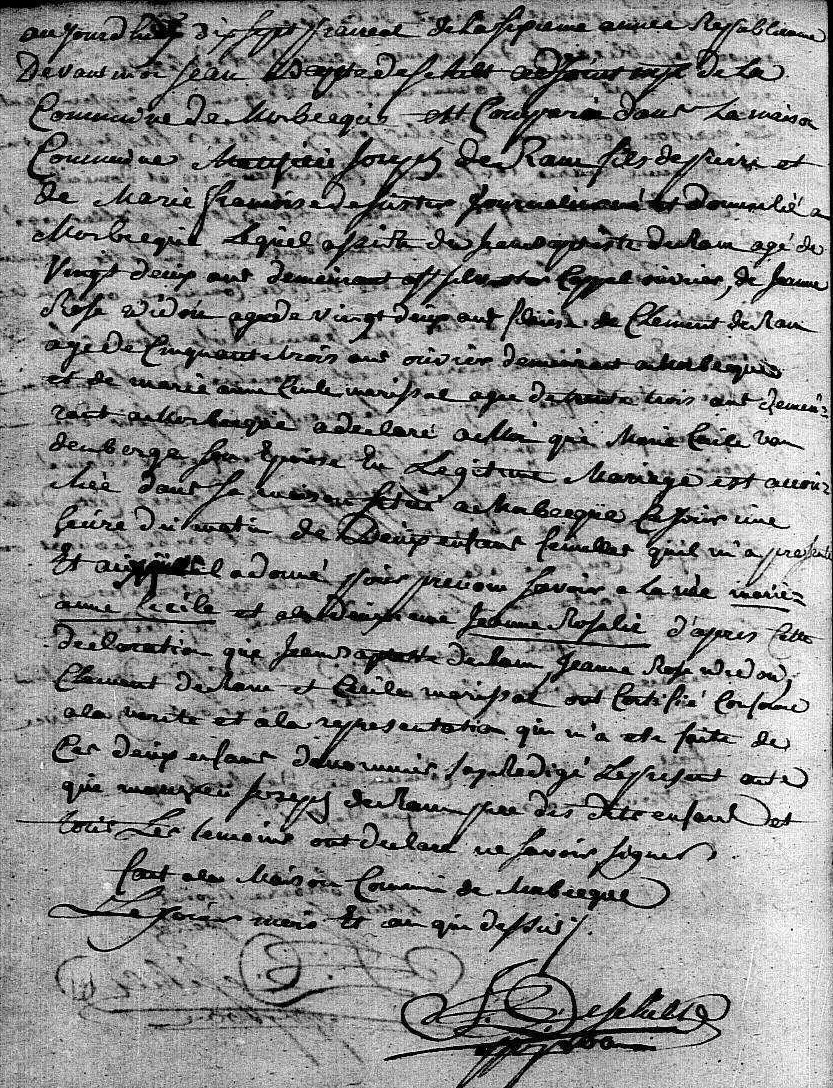 aujourdhuy dix sept prairial de la sixieme année Republicaine
Devant moi Jean Baptiste Deschildt adjoint mpl de la
Commune de Morbecque est Comparu dans La maison
Commune Joseph de Ram fils de pierre et
de Marie francoise Journalier et domicilié a
Morbecque Lequel assisté de Jean baptiste de Ram agé de
Vingt deux ans demeurant ouvrier, de Jeanne
Rose agée de vingt deux ans de Clement de Ram
agé de Cinquante trois ans ouvrier demeurant a Morbecque
et de marie anne Cecile marissal agee de trente trois ans demeu-
rant a Morbecque a declaré a Moi que Marie Cecile van
denberge son Epouse En Legitime Mariage est accou-
chée dans sa maison située a Morbecque Ce jour une
heure du matin de Deux enfans femelles quil m'a presenté
Et auxquels il a donné pour prenom savoir a la 1ere marie
anne Cecile et a la deuxieme Jeanne Rosalie d'apres Cette
declaration que Jean Baptiste de Ram Jeanne Rose
Clement de Ram et Cecile marissal ont Certifié Conforme
a la verité et a la representation qui m'a eté faite de
Ces deux enfans denommés Jay Redigé Le present acte
que Joseph de Ram pere des dits enfans et
tous Les temoins ont declaré ne savoir signer
fait a la Maison Commune de Morbecque
Le jour mois Et an que dessus
J. B. Deschildt